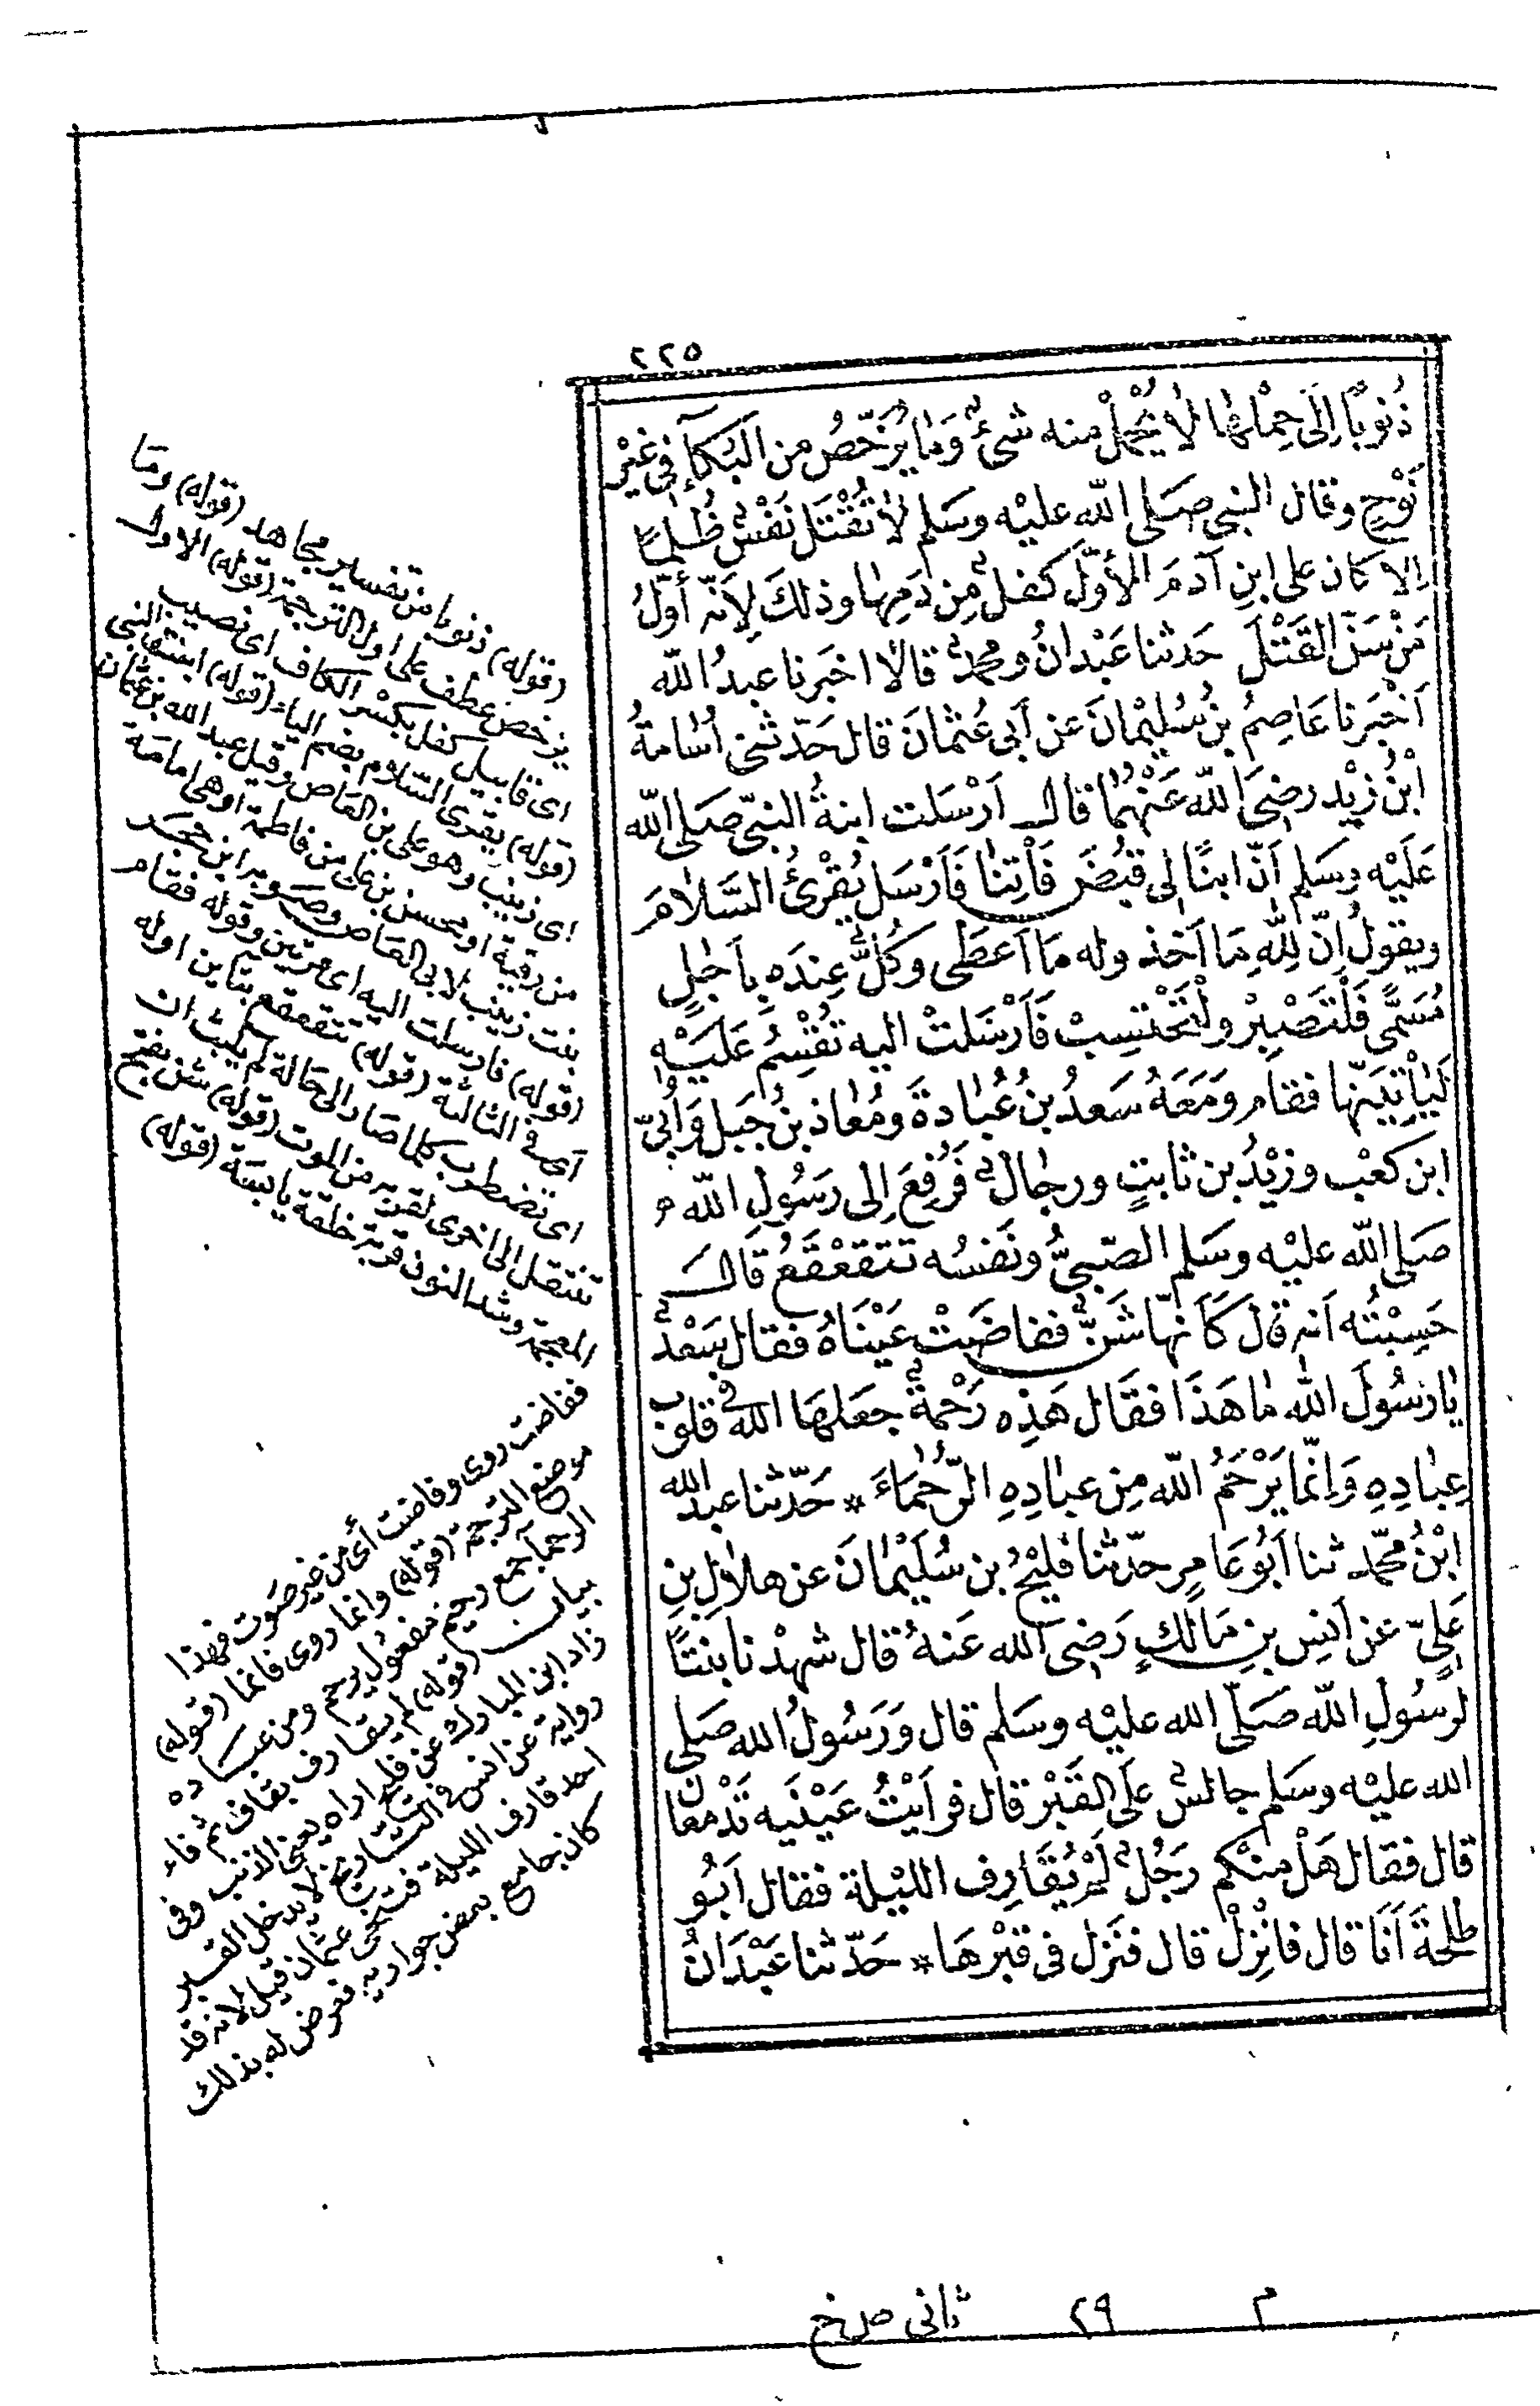 ٢٢٥
ذُنوبًا اِلَى حِمْلِهٰا لاٰ يُحْمَلْ منه شئٌ وَمٰا يُرَخَّصُ من البُكَآءِ فِى غَيْرِ
نَوْحٍ وقال النبى صَلى الله عليْه وسَلم لاٰ تُقْتَل نَفْسٌ ظُلمًا
اِلا كان على ابنِ آدمَ الأوّل كفلٌ مِن دَمِهٰا وذلكَ لِاَنّه أوّلُ
مَن سَنّ القَتْلَ حَدثنا عَبْدانُ ومحمدٌ قالاٰ اخبَرنا عبدُ الله
اَخْبَرنا عَاصِمُ بنُ سُلِيْمٰانَ عن اَبى عُثمٰانَ قال حَدّثنى اُسٰامةُ
ابْنُ زيْد رضىَ اللهُ عَنْهُمٰا قال اَرْسَلت ابنةُ النبىّ صَلى الله
عَلَيْه وسَلم اَنّ ابنًا لى قُبضَ فَاْتِنٰا فَاَرْسَل يُقْرئُ السَّلاٰمَ
ويقولُ اِنّ لِلّهِ مَا اَخذ وله مَا اَعطَى وكُلٌّ عِندَه بِاَجٰلٍ
مُسَمًّى فَلْتَصْبِرْ ولْتَحْتسِبْ فَاَرْسَلتْ اليه تُقْسِمُ عَليْهِ
لَيَاْتِيَنّها فقامَ وَمَعَهُ سَعدُ بنُ عُبٰادةَ ومُعٰاذ بنُ جَبَل وَاُبىّ
ابن كعْب وزيْدُ بن ثابتٍ ورجٰالٌ فَرُفِعَ اِلى رَسُولِ الله
صَلى الله عليْه وسَلم الصّبىُّ ونَفسُه تتقعْقَعُ قَال
حَسِبْتُه اَنه قال كَاَنهّا شَنٌّ ففاضَتْ عَيْنَاهُ فقال سَعْدٌ
يٰا رَسُولَ الله مٰا هَذَا فقَال هَذِه رَحْمةٌ جعَلهَا الله فى قلوب
عِبٰادِهِ وَاِنّمٰا يَرْحَمُ الله مِن عبٰادِهِ الرُّحَمٰاءَ * حَدّثنا عبد الله
ابْنُ محمّد ثنا اَبُو عَامِرٍ حدّثنا فليْحُ بن سُلَيْمٰانَ عن هلاٰلِ بنِ
عَلىٍّ عن اَنسِ بنِ مَالكٍ رَضى الله عَنهُ قال شهدْنا بنتًا
لرسُولِ اللهِ صَلّى الله عليْه وسَلم قال وَرَسُولُ الله صَلى
الله عليْه وسَلم جالسٌ عَلَى القَبْر قال فراَيْتُ عَيْنَيه تَدْمَعان
قال فقال هَلْ منْكم رَجُلٌ لمْ يُقَارِف الليْلة فقال اَبُو
طلحَةَ اَنَا قال فانْزِلْ قال فنَزل فى قبْرهَا * حَدّثنا عَبْدَانُ
(قوله) ذنوبا من تفسير مجاهد (قوله) وما
يرخص عطف على اول الترجمة (قوله) الاول
اى قابيل كفل بكسر الكاف اى نصيب
(قوله) يقرى السلام بضم الياء (قوله) ابنة النبى
اى زينب وهو على بن العاص وقيل عبد الله بن عثمان
من رقية او محسن بن على من فاطمة او هى امامة
بنت زينب لابى العاص وصوبه ابن حجر
(قوله) فارسلت اليه اى مرتين وقوله فقام
اى فى الثالثة (قوله) تتقعقع بتاين اوله
اى تضطرب كلما صار الى حالة لم يلبث ان
تنتقل الى اخرى لقربه من الموت (قوله) شن بفتح
المعجمة وشد النون قربة خلقة يابسة (قوله)
ففاضت روى وفاضت أى من غير صوت فهذا
موضع الترجمة (قوله) وانما روى فانما (قوله)
الرحماء جمع رحيم مفعول يرحم ومن عباده
بيان (قوله) لم يقارف بقاف ثم فاء
زاد ابن المبارك عن فليح اراه يعنى الذنب وفى
رواية عن انس فى التاريخ لا يدخل القبر
احد قارف الليلة فتنحى عثمان قيل لانه قد
كان جامع بعض جواريه فعرض له بذلك
م ٢٩ ثانى ص خ